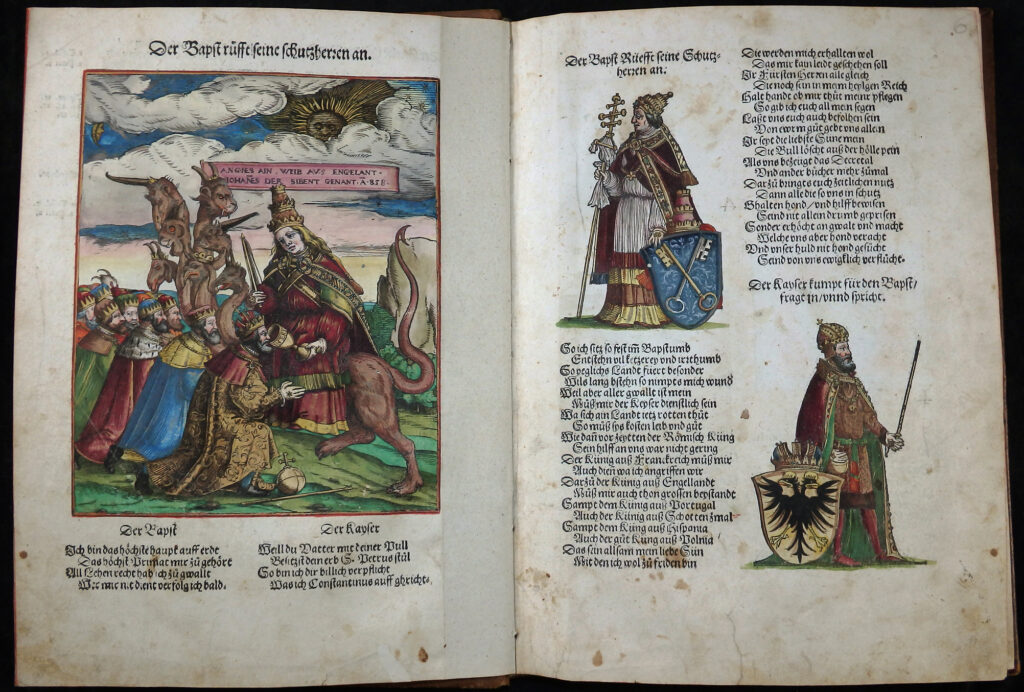 Der Bapst rüfft seine schutzherren an.
ANGNES AIN WEIB AVS ENGELANT
IOHAÑES DER SIBENT GENANT Ā 858
Der Bapst
Ich bin das höchste haupt auff erde
Das höchst Primat mir zů gehöre
All Lehen recht hab ich zů gwallt
Wer mir nit dient verfolg ich bald.
Der Kayser
Weil du Vatter mit deiner Pull
Besitzst den erb S. Petrus stůl
So bin ich dir billich verpflicht
Was ich Constantinus auff ghricht.
Der Bapst Rüefft seine Schutz-
herren an.
So ich sitz so fest im̄ Bapstumb
Entstehn vil ketzerey vnd irrthumb
So yeglichs Landt füert besonder
Wils lang bstehn so nimpts mich wund
Weil aber aller gwallt ist mein
Můß mir der Keyser dienstlich sein
Wa sich ain Landt ietz rotten thůt
So můß sys kosten leib vnd gůt
Wie dan̄ vor zeytten der Römisch Küng
Sein hilff an vns war nicht gering
Der Künig auß Franckreich můß mir
Auch dien̄ wa ich angriffen wir
Darzů der Künig auß Engellandt
Můß mir auch thon grossen beystandt
Sampt dem Küng auß Portugal
Auch der Künig auß Schotten zmal
Sampt dem Küng auß Hispania
Auch der gůt Küng auß Polnia
Das sein allsam mein liebe Sün
Mit den ich wol zů friden bin
Die werden mich erhallten wol
Das mir kain leidt geschehen soll
Ir Fürsten Herren alle gleich
Die noch sein in meim heylgen Reich
Halt handt ob mir thůt meinr pflegen
So gib ich euch all mein segen
Laßt vns euch auch befolhen sein
Von ewrm gůt gebt vns allein
Ir seyt die liebste Süne mein
Die Bull löscht auß der hölle pein
Als vns bezeugt das Decretal
Vnd ander bücher mehr zůmal
Darzů bringts euch zeitlichen nutz
Dann alle die so vns in schutz
Ghalten hond / vnd hilff bewisen
Seind nit allein drumb geprisen
Sonder erhöcht an gwalt vnd macht
Welche vns aber hond veracht
Vnd vnser huld nit hond gesücht
Seind von vns ewigklich verflücht.
Der Kayser kumpt für den Bapst /
fragt in / vnnd spricht.